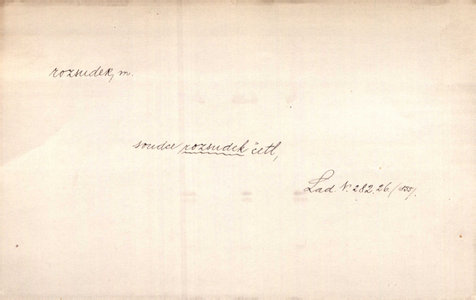 rozsudek, m.
soudce rozsudek četl,
Lad N. 282.26